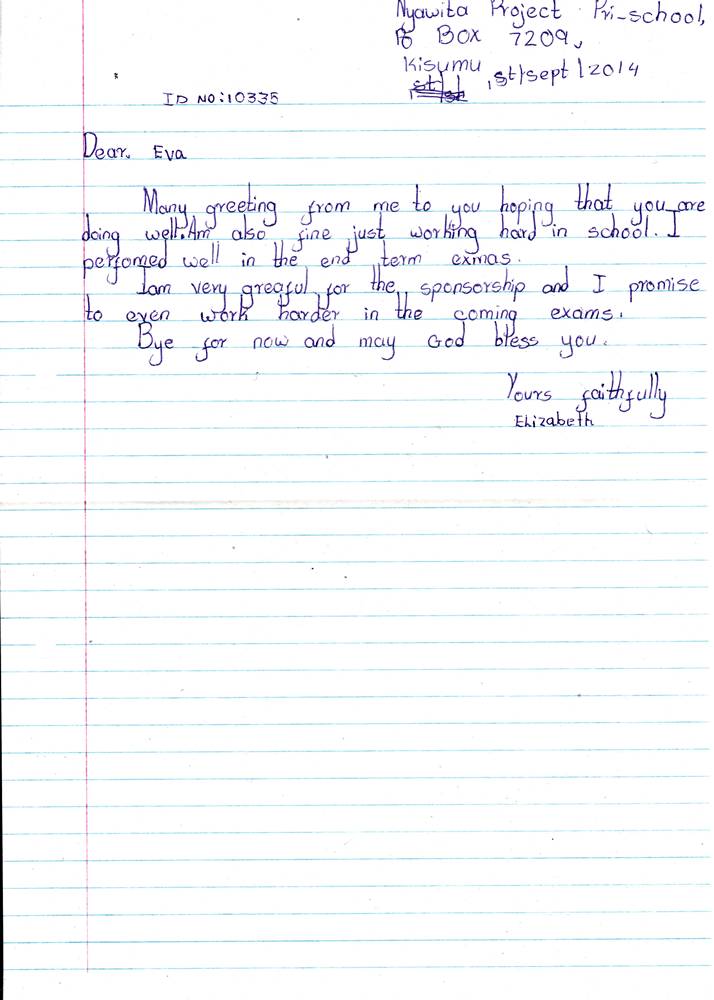 Nyawita Project Pri-school,
PO BOX 7209,
Kisumu
1st/sept/2014
ID NO:10335
Dear. Eva
Many greeting from me to you hoping that you are
doing well.Am also fine just working hard in school. I
perfomed well in the end term exmas.
Iam very greaful for the sponsorship and I promise
to even work harder in the coming exams.
Bye for now and may God bless you.
Yours faithfully
Elizabeth